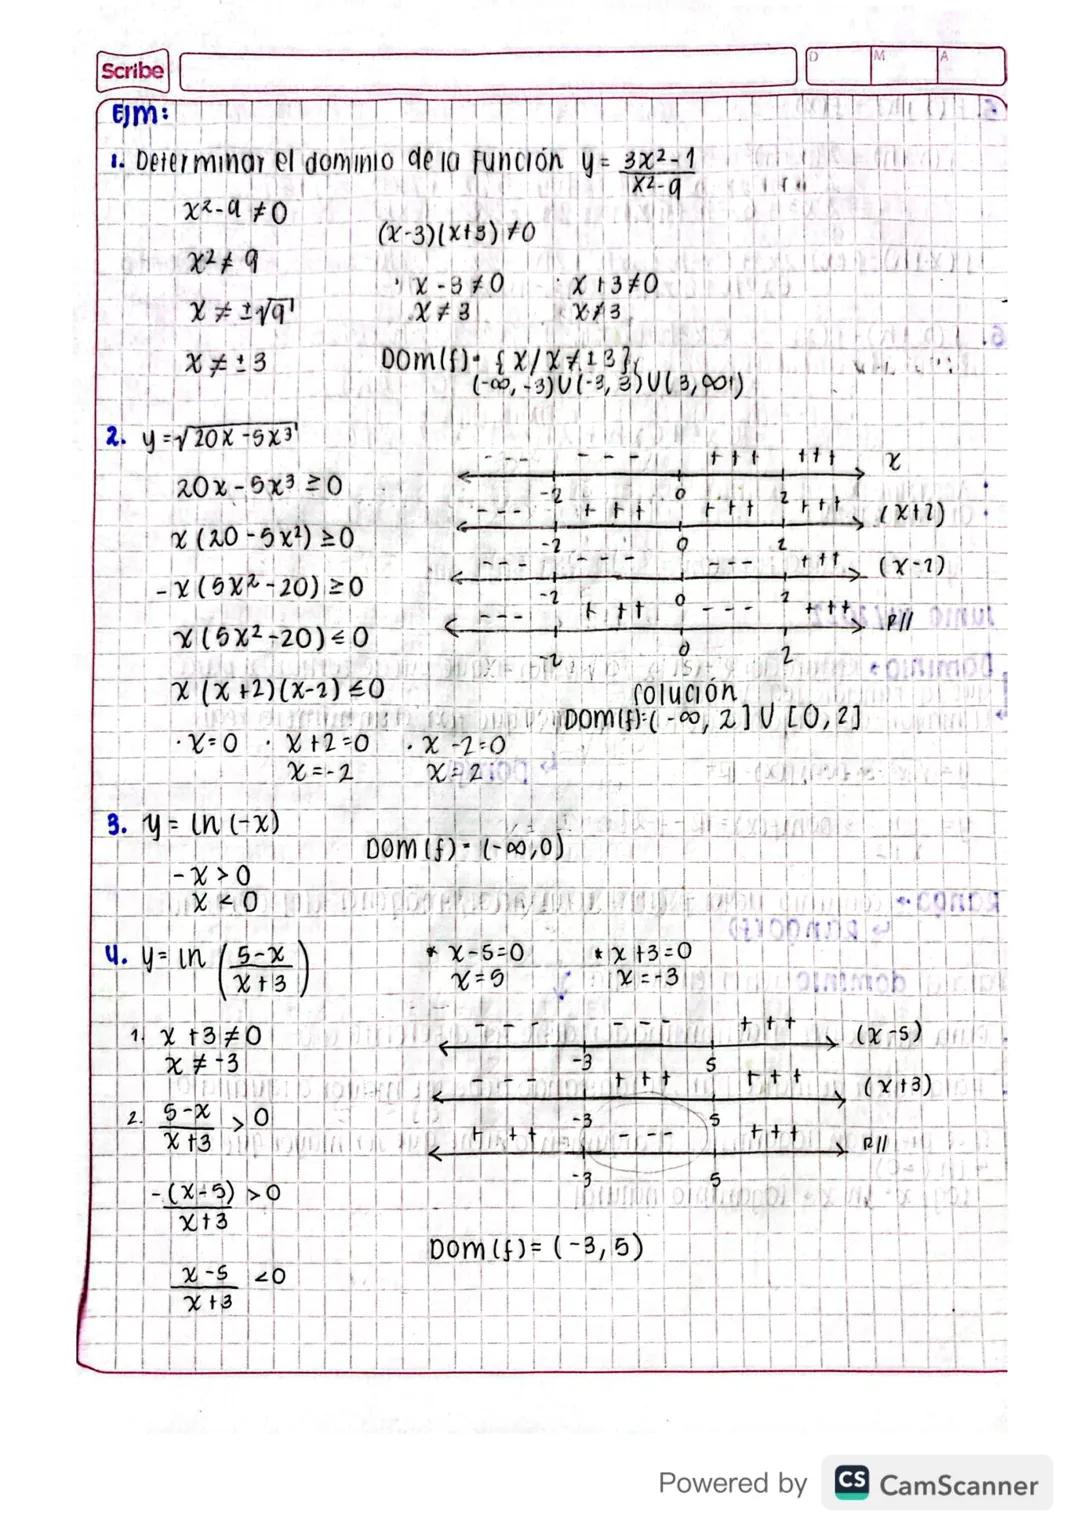 Scribe
D M A
Ejm:
1. Determinar el dominio de la función y = 3x²-1 / x²-9
x²-9 ≠ 0
(x-3)(x+3) ≠ 0
x² ≠ 9
· x - 3 ≠ 0 · x + 3 ≠ 0
x ≠ ±√9 x ≠ 3 x ≠ 3
x ≠ ± 3 Dom(f) = { x / x ≠ ± 3 }
(-∞, -3) U (-3, 3) U (3, ∞)
2. y = √20x - 5x³
20x - 5x³ ≥ 0
x (20 - 5x²) ≥ 0
-x (5x² - 20) ≥ 0
x (5x² - 20) ≤ 0
x (x + 2)(x - 2) ≤ 0
· x = 0 · x + 2 = 0 · x - 2 = 0
x = -2 x = 2
- - - - - - + + + + + + x
-2 0 2
- - - + + + + + + + + + (x+2)
-2 0 2
- - - - - - - - - + + + (x-2)
-2 0 2
- - - + + + - - - + + + R//
-2 0 2
solución
Dom(f): (-∞, 2] U [0, 2]
3. y = ln (-x)
Dom (f) = (-∞, 0)
-x > 0
x < 0
4. y = ln (5-x / x+3)
* x - 5 = 0 * x + 3 = 0
x = 5 x = -3
1. x + 3 ≠ 0
x ≠ -3
2. 5-x / x+3 > 0
-(x-5) / x+3 > 0
x-5 / x+3 < 0
- - - - - - + + + (x-5)
-3 5
- - - + + + + + + (x+3)
-3 5
+ + + - - - + + + R//
-3 5
Dom (f) = (-3, 5)
Powered by CS CamScanner